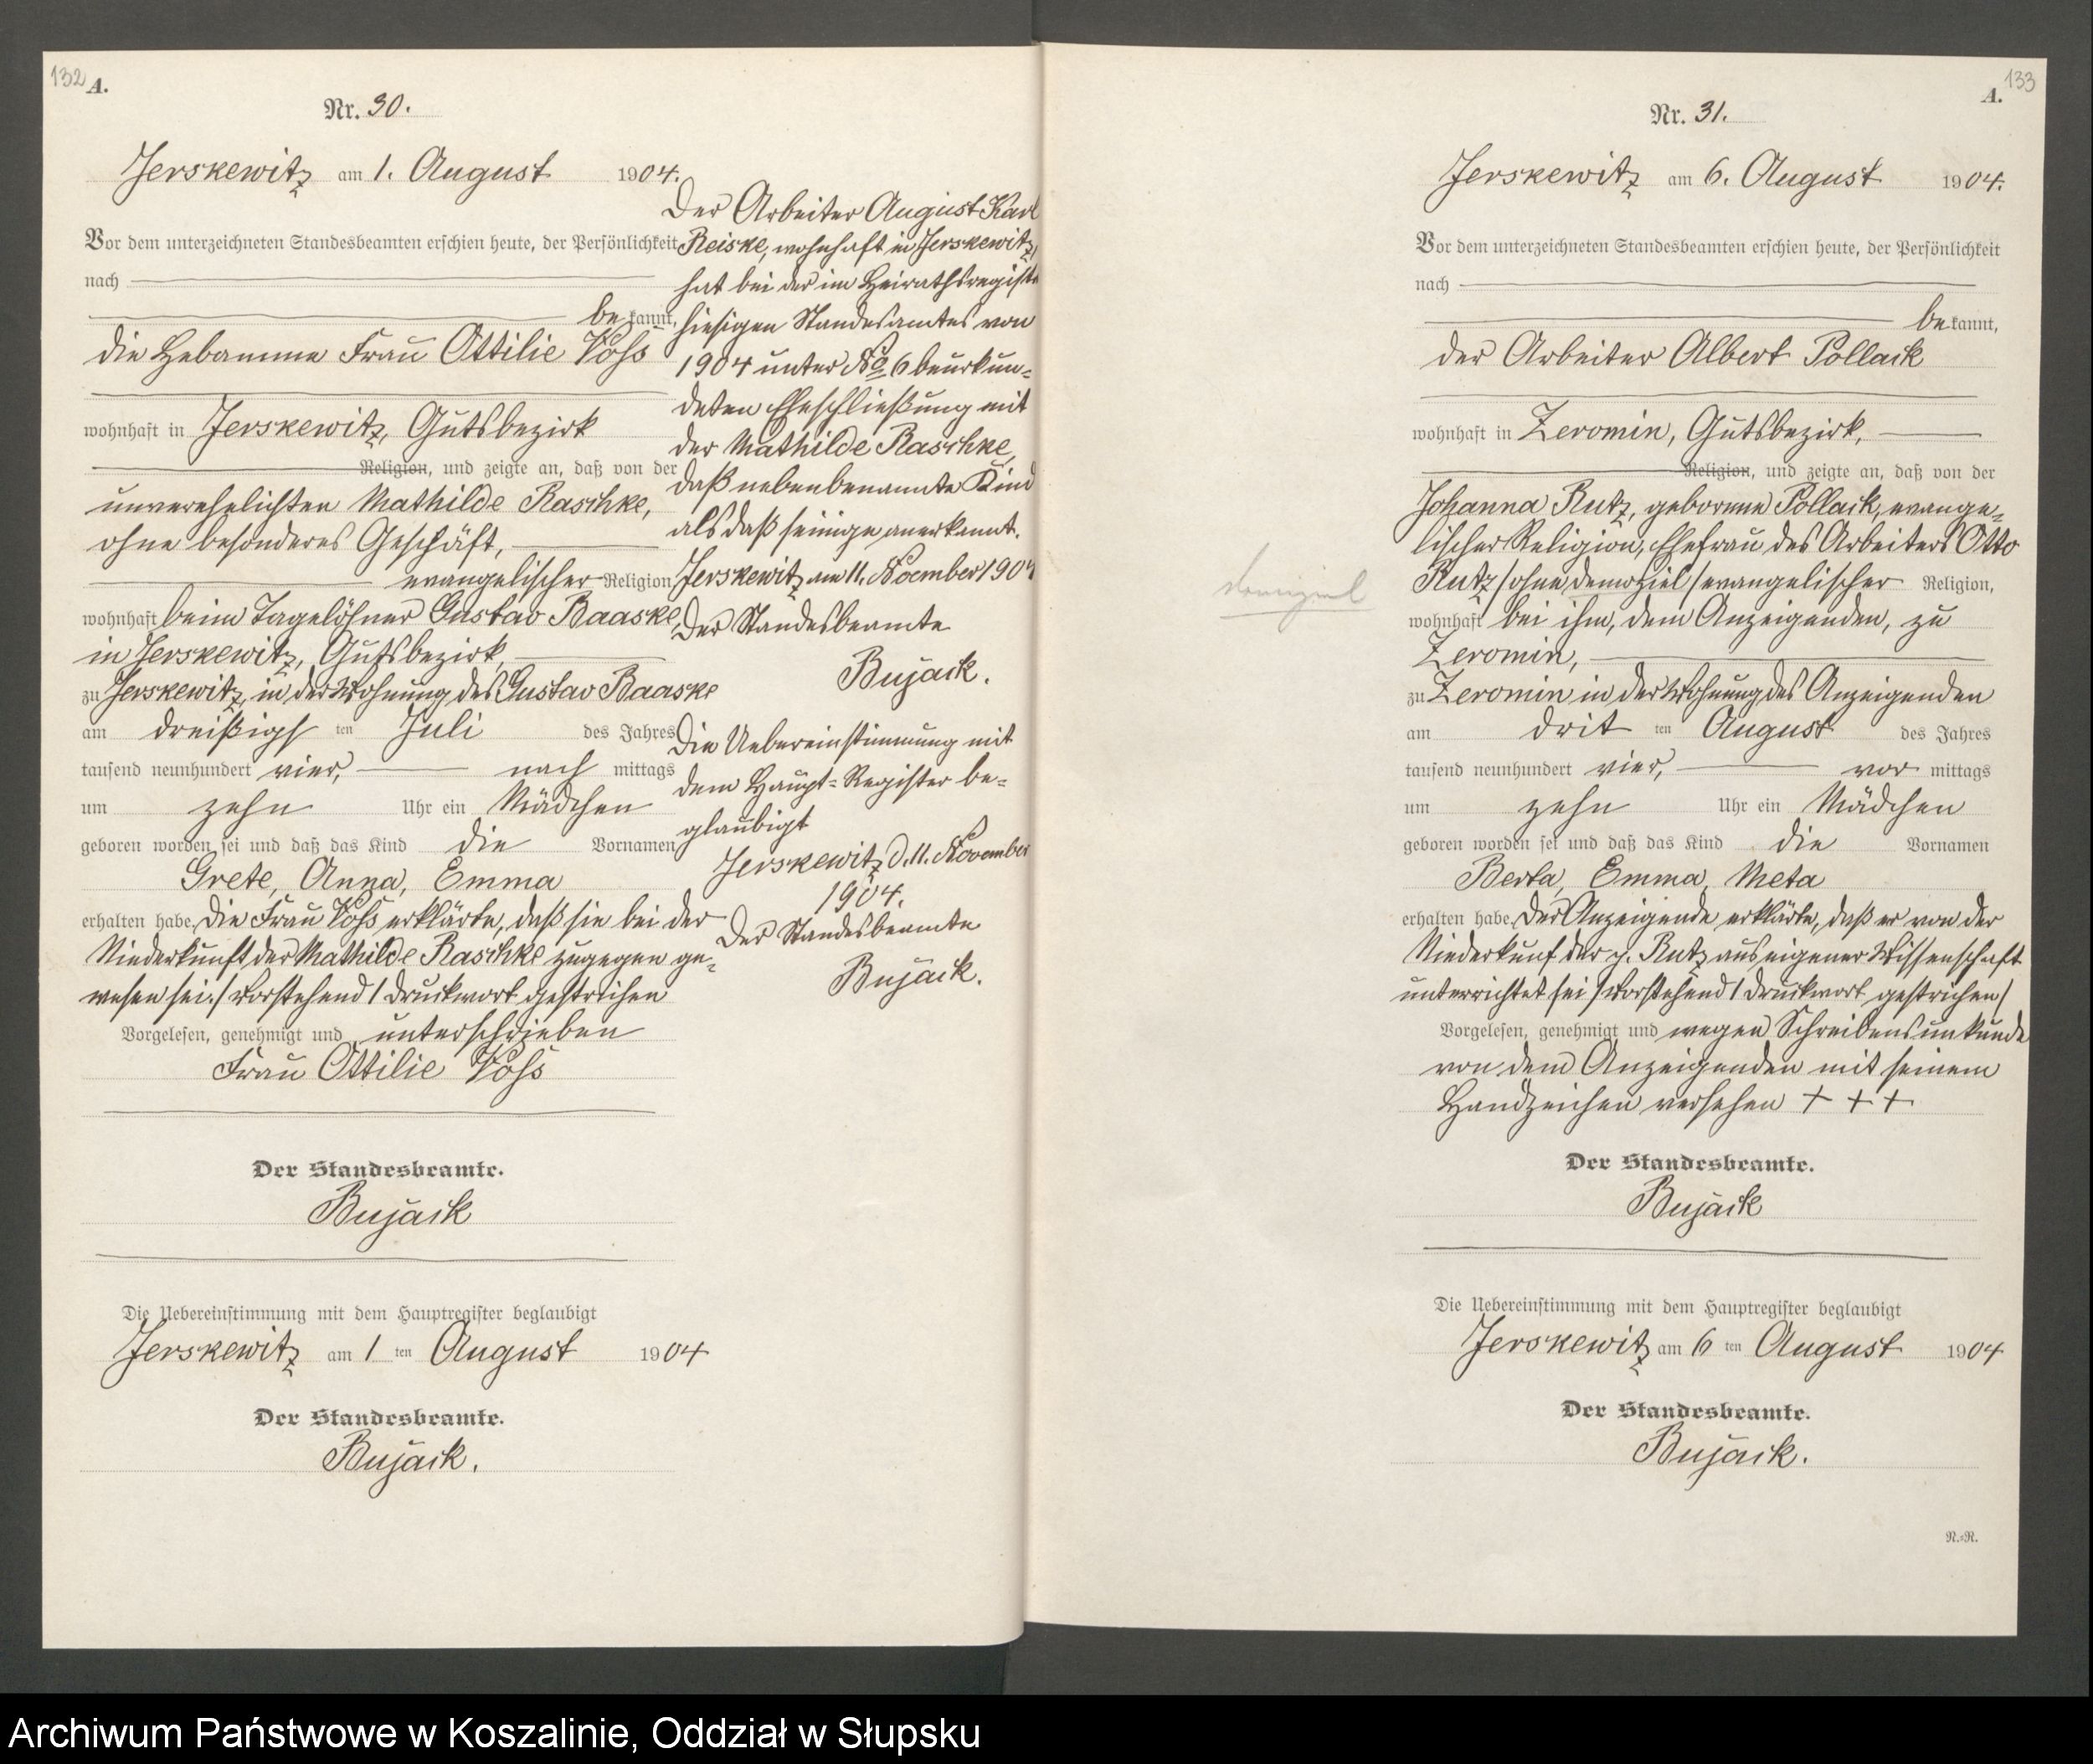 132 A.
Nr. 30.
Jerskewitz am 1. August 1904.
Vor dem unterzeichneten Standesbeamten erschien heute, der Persönlichkeit
nach
bekannt,
die Hebamme Frau Ottilie Voss
wohnhaft in Jerskewitz, Gutsbezirk
Religion, und zeigte an, daß von der
unverehelichten Mathilde Raschke,
ohne besonderes Geschäft,
evangelischer Religion
wohnhaft beim Tagelöhner Gustav Baaske,
in Jerskewitz, Gutsbezirk,
zu Jerskewitz, in der Wohnung des Gustav Baaske
am dreißigs ten Juli des Jahres
tausend neunhundert vier, nach mittags
um zehn Uhr ein Mädchen
geboren worden sei und daß das Kind die Vornamen
Grete, Anna, Emma
erhalten habe. Die Frau Voss erklärte, daß sie bei der
Niederkunft der Mathilde Raschke zugegen ge-
wesen sei. / Vorstehend 1 Druckwort gestrichen
Vorgelesen, genehmigt und unterschrieben
Frau Ottilie Voss
Der Standesbeamte.
Bujack
Die Uebereinstimmung mit dem Hauptregister beglaubigt
Jerskewitz am 1 ten August 1904
Der Standesbeamte.
Bujack.
Der Arbeiter August Karl
Reiske, wohnhaft in Jerskewitz,
hat bei der im Heirathsregiste
hiesigen Standesamtes von
1904 unter No 6 beurkun-
deten Eheschließung mit
der Mathilde Raschke,
daß nebenbenannte Kind
als daß seinige anerkannt.
Jerskewitz am 11. Noember 1904
Der Standesbeamte
Bujack.
Die Uebereinstimmung mit
dem Haupt-Register be-
glaubigt
Jerskewitz d. 11. November
1904.
Der Standesbeamte
Bujack.
133
A.
Nr. 31.
Jerskewitz am 6. August 1904.
Vor dem unterzeichneten Standesbeamten erschien heute, der Persönlichkeit
nach
bekannt,
der Arbeiter Albert Pollack
wohnhaft in Zeromin, Gutsbezirk,
Religion, und zeigte an, daß von der
Johanna Rutz, geborene Pollack, evange-
lischer Religion, Ehefrau des Arbeiters Otto
Rutz / ohne demoziel / evangelischer Religion,
wohnhaft bei ihm, dem Anzeigenden, zu
Zeromin,
zu Zeromin in der Wohnung des Anzeigenden
am drit ten August des Jahres
tausend neunhundert vier, vor mittags
um zehn Uhr ein Mädchen
geboren worden sei und daß das Kind die Vornamen
Berta, Emma, Meta
erhalten habe. Der Anzeigende erklärte, daß er von der
Niederkunf der p. Rutz aus eigener Wissenschaft
unterrichtet sei / Vorstehend 1 Druckwort gestrichen /
Vorgelesen, genehmigt und wegen Schreibensunkunde
von dem Anzeigenden mit seinem
Handzeichen versehen + + +
Der Standesbeamte.
Bujack
Die Uebereinstimmung mit dem Hauptregister beglaubigt
Jerskewitz am 6 ten August 1904
Der Standesbeamte.
Bujack.
N.-R.
Archiwum Państwowe w Koszalinie, Oddział w Słupsku